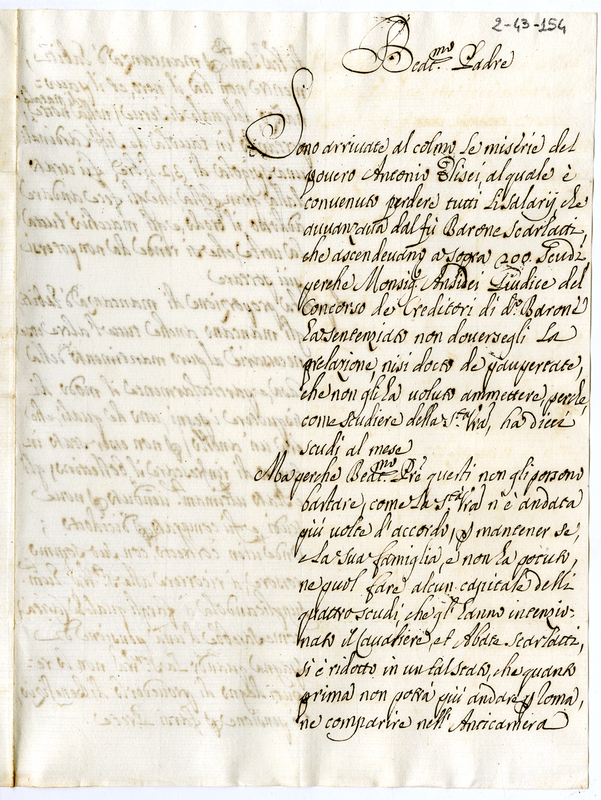 2-43-154
Beat.mo Padre
Sono arrivate al colmo le miserie del
povero Antonio Elisei, al quale è
convenuto perdere tutti li salarij che
avvanzava dal fù Barone Scarlatti,
che ascendevano a sopra 200 scudi
perche Monsig. Ansidei Giudice del
Concorso de Creditori di d.o Barone
ha sentenziato non doversegli la
prelazione, nisi docto de paupertate,
che non gli ha voluto ammettere, perche,
come scudiere della S.tà V.ra, ha dieci
scudi al mese
Ma perche Beat.mo P.re questi non gli possono
bastare, come la S.tà V.ra n'è andata
più volte d'accordo, p mantener se,
e la sua famiglia, e non ha potuto,
ne puol fare alcun capitale delli
quattro scudi, che gl'hanno intenzio-
nato il Cavaliere, et Abate Scarlatti,
si è ridotto in un tal stato, che quanto
prima non potrà più andare p Roma,
ne comparire nell'Anticamera